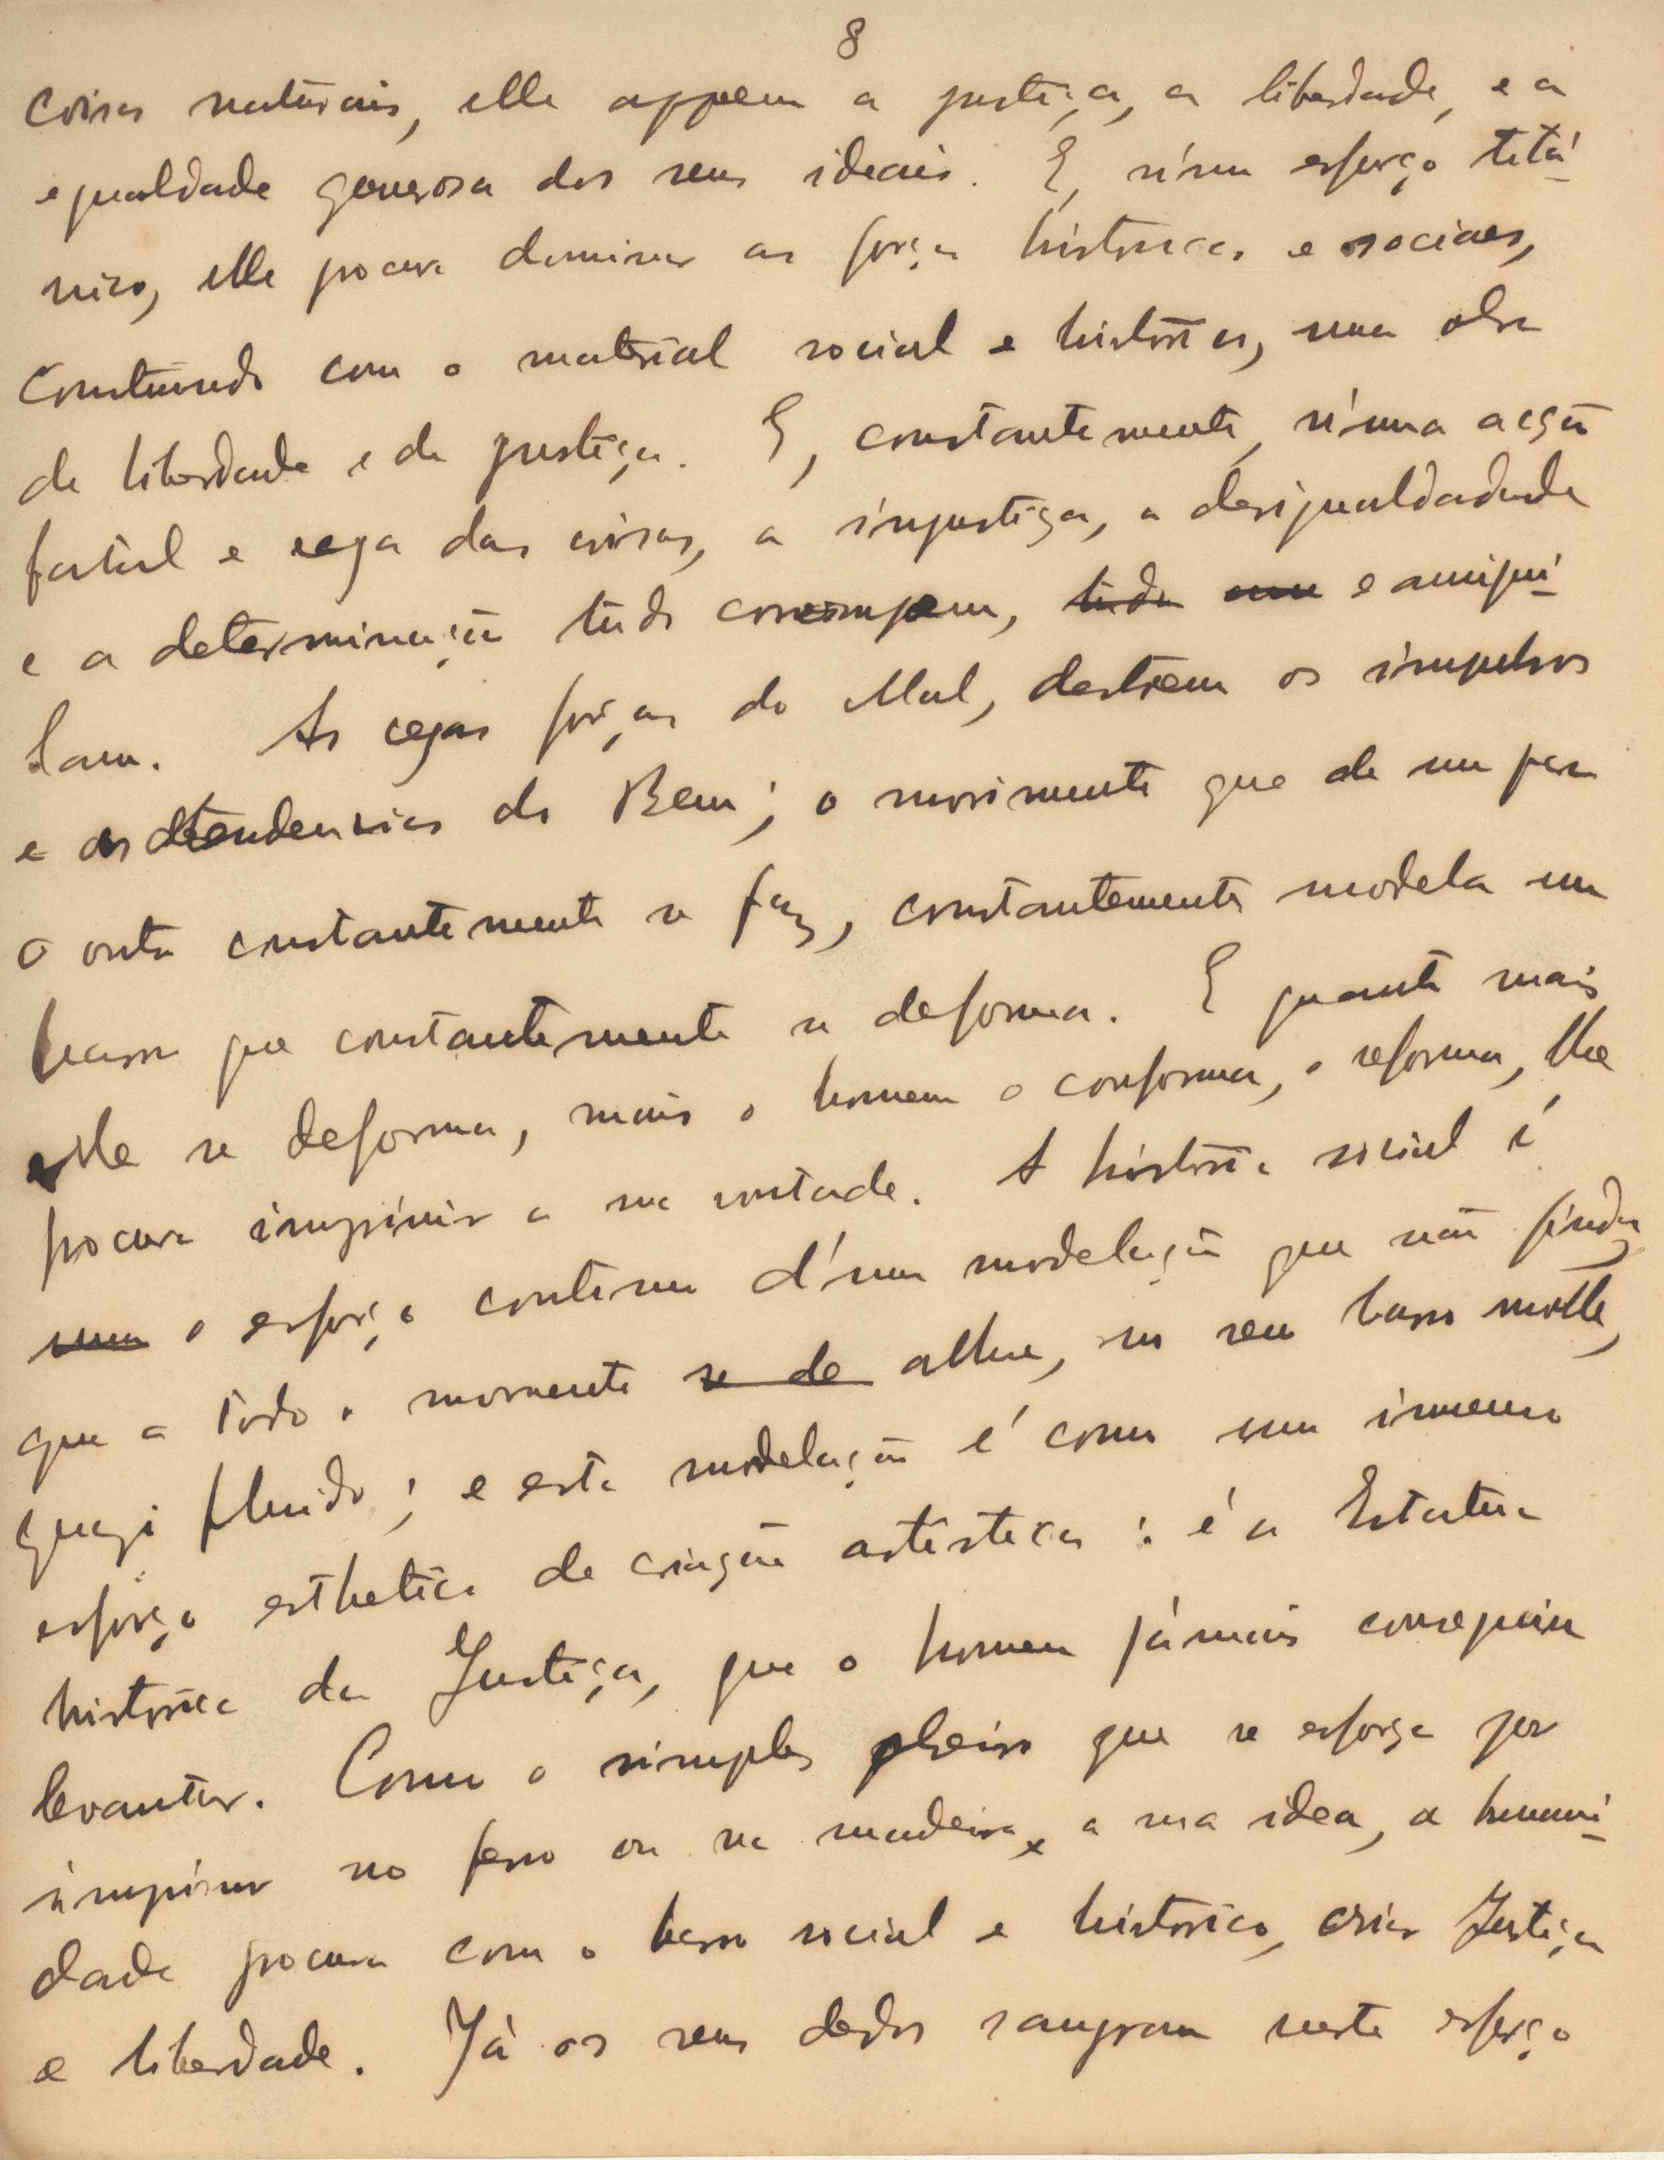 8
coisas naturais, elle oppoem a justiça, a liberdade, e a
egualdade generosa dos seus ideais. E, n'um esforço titá-
nico, elle procura dominar as forças historicas e sociaes,
construindo com o material social e historico, uma obra
de liberdade e de justiça. E, constantemente, n'uma acção
fatal e cega das coisas, a injustiça, a desigualdadade
e a determinação tudo corrompem, tudo e aniqui-
lam. As cegas forças do Mal, destroem os impulsos
e as tendencias do Bem; o movimento que de um para
o outro constantemente se faz, constantemente modela um
barro que constantemente se deforma. E quanto mais
elle se deforma, mais o homem o conforma, o reforma, lhe
procura imprimir a sua vontade. A historia social é
uma o esforço continuo d'uma modelação que não finda,
que a todo o momento se de allue, no seu barro molle,
quazi fluido; e esta modelação é como um immenso
esforço esthetico de criação artistica: é a Estatua
historica da Justiça, que o homem jámais conseguiu
levantar. Como o simples que se esforça por
imprimir no ferro ou na madeira, a sua idea, a humani-
dade procura com o barro social e historico, criar Justiça
e liberdade. Já os seus dedos sangram neste esforço